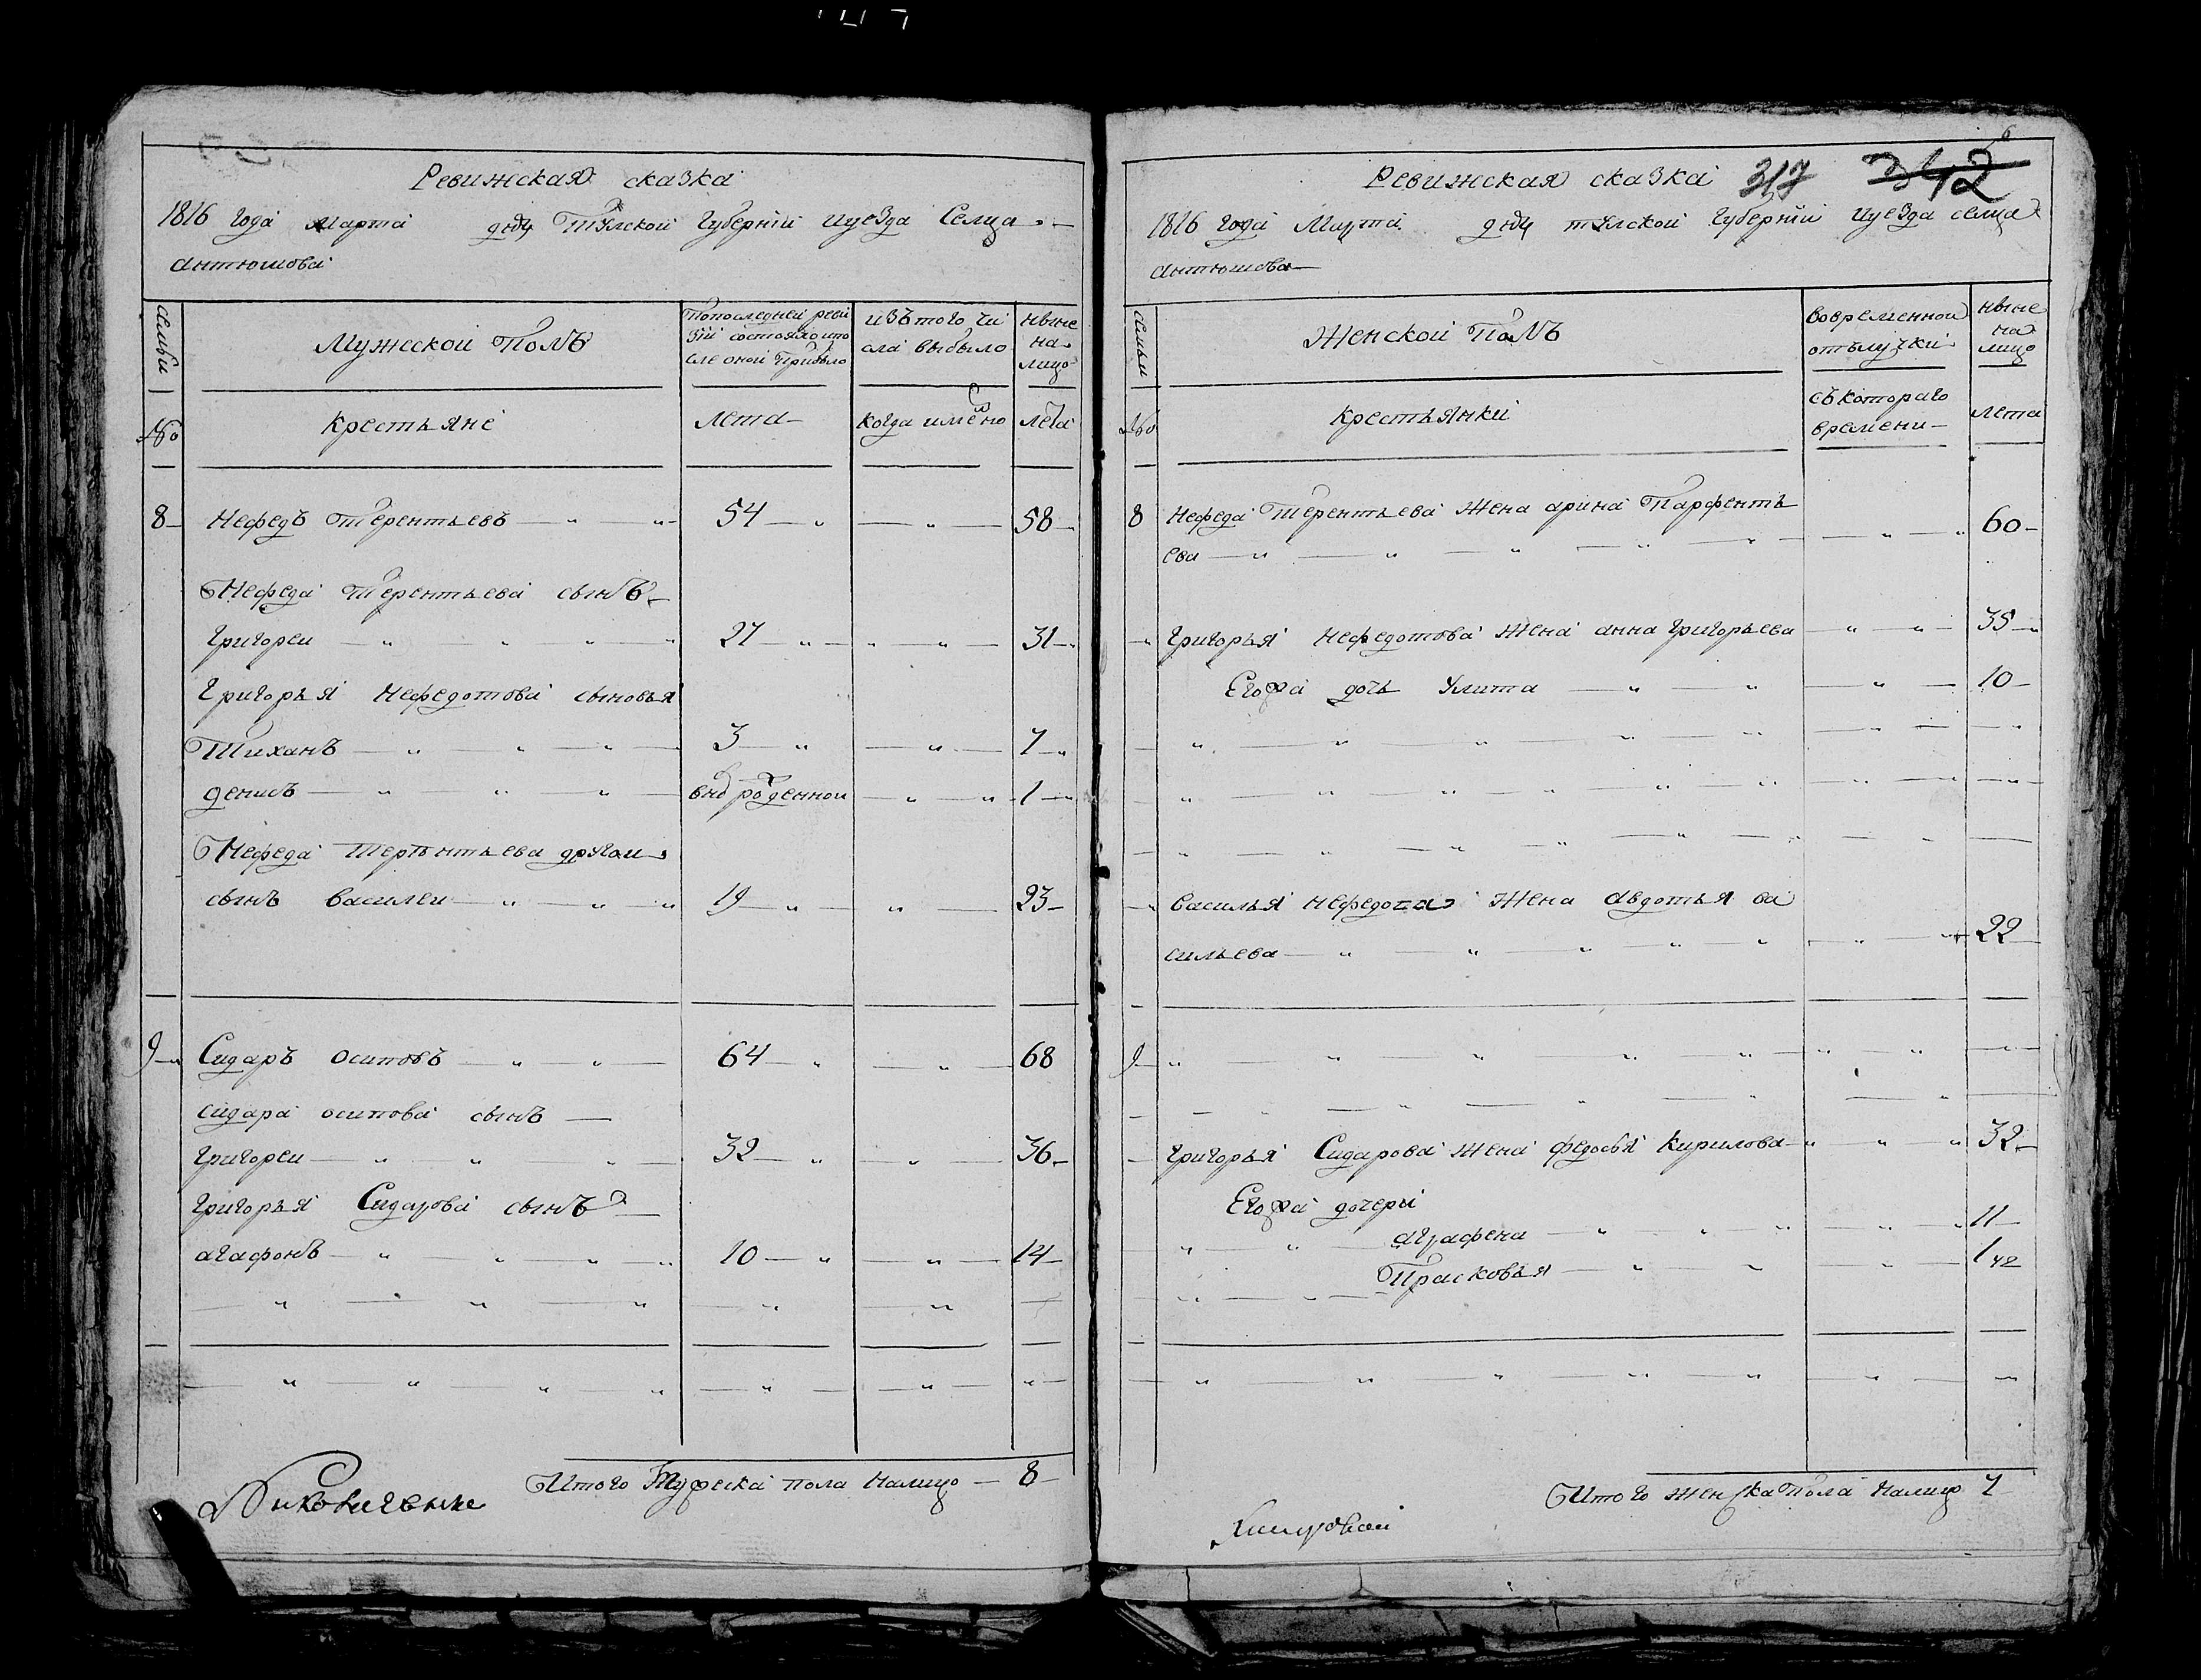 Ревижская сказка
1816 года марта дня Тулской Губернїи иуезда Селца
антюшова
семьи
Мужеской Полъ
Попоследней реви
зїи состояло ипо
сле оной Прибыло
изътого чи
сла выбыло
ныне
на
лицо
№
крестьяне
лета
когда имено
лета
8 Нефедъ Терентьевъ 54 58
Нефеда Терентьева сынъ
Григореи 27 31
Григорья Нефедотова сыновья
Тиханъ 3 7
денисъ вно роденнои 1
Нефеда Терентьева другои
сынъ Василеи 19 23
9 Сидаръ осиповъ 64 68
сидара осипова сынъ
Григореи 32 36
Григорья Сидарова сынъ
агафонъ 10 14
Итого Мужеска пола налицо 8
6
Ревижская сказка 317 342
1816 года Марта дня тулской Губернїи иуезда селца
антюшова
семьи
Женской Полъ
вовременной
отълучки
ныне
на
лицо
№
крестьянки
съкотораго
времени
лета
8 Нефеда Терентьева жена арина Парфенть
ева 60
Григорья нефедотова жена анна григорьева 35
Егожа дочь улита 10
Василья нефедова жена авдотья ва
сильева 22
9
Григорья Сидарова жена федосья кирилова 32
Егожа дочери
аграфена 11
Прасковья 1
Итого женска Пола налицо 7